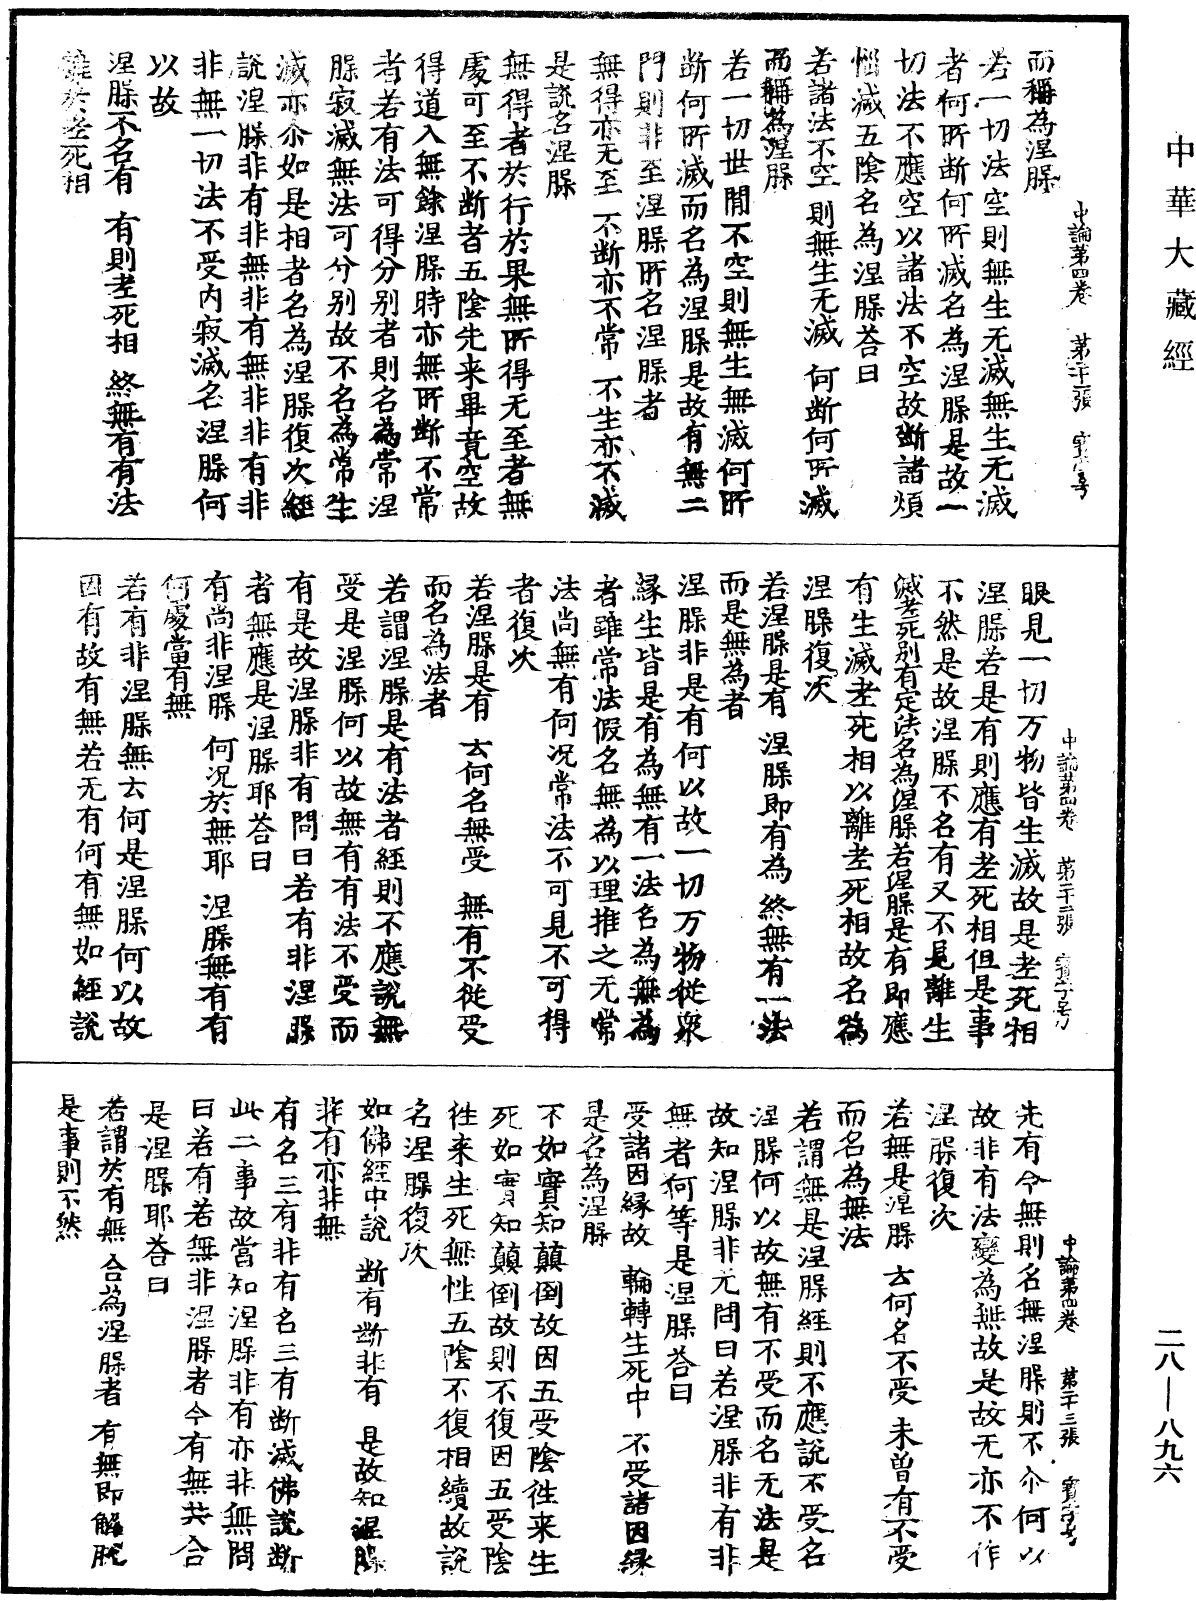 中華大藏經
而稱為涅槃
中論第四卷 第二十一張 寶字号
若一切法空則無生无滅無生无滅
者何所断何所滅名為涅槃是故一
切法不應空以諸法不空故断諸煩
惱滅五陰名為涅槃荅曰
若諸法不空 則無生无滅 何断何所滅
而稱為涅槃
若一切世閒不空則無生無滅何所
断何所滅而名為涅槃是故有無二
門則非至涅槃所名涅槃者
無得亦无至 不断亦不常 不生亦不滅
是說名涅槃
無得者於行於果無所得无至者無
處可至不断者五陰先来畢竟空故
得道入無餘涅槃時亦無所断不常
者若有法可得分别者則名為常涅
槃寂滅無法可分别故不名為常生
滅亦尒如是相者名為涅槃復次經
說涅槃非有非無非有無非非有非
非無一切法不受内寂滅名涅槃何
以故
涅槃不名有 有則老死相 終無有有法
離於老死相
眼見一切万物皆生滅故是老死相
中論第四卷 第二十二張 寶字号
涅槃若是有則應有老死相但是事
不然是故涅槃不名有又不見離生
滅老死别有定法名為涅槃若涅槃是有即應
有生滅老死相以離老死相故名為
涅槃復次
若涅槃是有 涅槃即有為 終無有一法
而是無為者
涅槃非是有何以故一切万物從衆
緣生皆是有為無有一法名為無為
者雖常法假名無為以理推之无常
法尚無有何况常法不可見不可得
者復次
若涅槃是有 云何名無受 無有不從受
而名為法者
若謂涅槃是有法者經則不應說無
受是涅槃何以故無有有法不受而
有是故涅槃非有問曰若有非涅槃
者無應是涅槃耶荅曰
有尚非涅槃 何况於無耶 涅槃無有有
何處當有無
若有非涅槃無云何是涅槃何以故
因有故有無若无有何有無如經說
先有今無則名無涅槃則不尒何以
中論第四卷 第二十三張 寶字号
故非有法變為無故是故无亦不作
涅槃復次
若無是涅槃 云何名不受 未曾有不受
而名為無法
若謂無是涅槃經則不應說不受名
涅槃何以故無有不受而名无法是
故知涅槃非无問曰若涅槃非有非
無者何等是涅槃荅曰
受諸因緣故 輪轉生死中 不受諸因緣
是名為涅槃
不如實知顛倒故因五受陰往来生
死如實知顛倒故則不復因五受陰
往来生死無性五陰不復相續故說
名涅槃復次
如佛經中說 断有断非有 是故知涅槃
非有亦非無
有名三有非有名三有断滅佛說断
此二事故當知涅槃非有亦非無問
曰若有若無非涅槃者今有無共合
是涅槃耶荅曰
若謂於有無 合為涅槃者 有無即解脫
是事則不然
二八—八九六